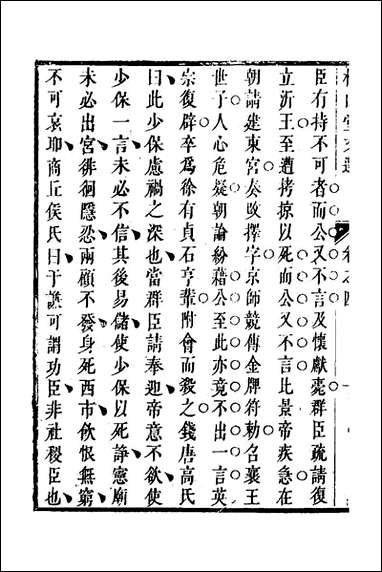 山堂文選 卷之四
臣有持不可者而公又不言及懷獻薨群臣疏請復
立沂王至遭拷掠以死而公又不言比景帝疾急在
朝請建東宮奏改擇字京師競傳金牌符勅召襄王
世子人心危疑朝論紛藉公至此亦竟不出一言英
宗復辟卒為徐有貞石亨輩附會而殺之錢唐高氏
曰此少保慮禍之深也當群臣請奉迎帝意不欲使
少保一言未必不信其後易儲使少保以死諍憲廟
未必出宮徘徊隱忍兩顧不發身死西市飲恨無窮
不可哀耶商丘侯氏曰于謙可謂功臣非社稷臣也